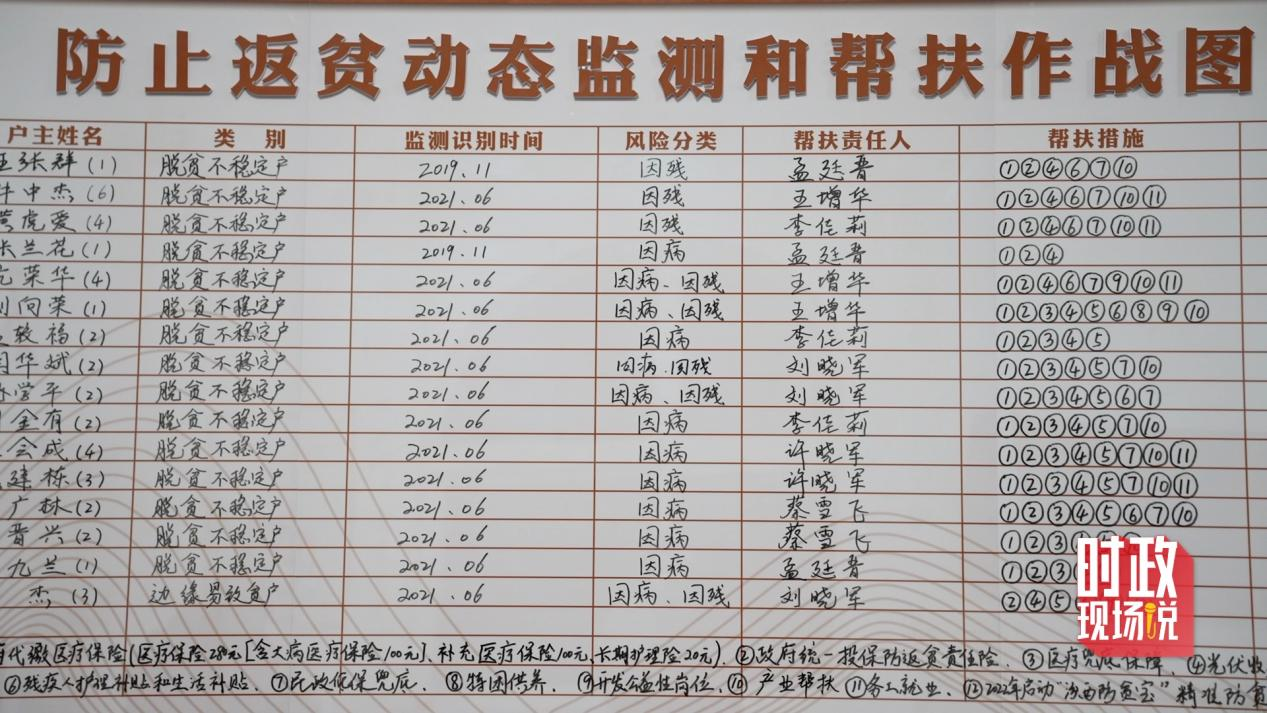 防止返贫动态监测和帮扶作战图
户主姓名 类别 监测识别时间 风险分类 帮扶责任人 帮扶措施
张群(1) 脱贫不稳定户 2019.11 因残 孟廷晋 ①②④⑥⑦⑩
中杰(6) 脱贫不稳定户 2021.06 因残 王增华 ①②④⑥⑦⑩⑪
虎爱(4) 脱贫不稳定户 2021.06 因残 李佳莉 ①②④⑥⑦⑩⑪
兰花(1) 脱贫不稳定户 2019.11 因病 孟廷晋 ①②④
荣华(4) 脱贫不稳定户 2021.06 因病、因残 王增华 ①②④⑥⑦⑨⑩⑪
向荣(1) 脱贫不稳定户 2021.06 因病、因残 王增华 ①②③④⑤⑥⑧⑨⑩
福(2) 脱贫不稳定户 2021.06 因病 李佳莉 ①②③④⑤
华斌(2) 脱贫不稳定户 2021.06 因病、因残 刘晓军 ①②③④⑤⑦⑩
学平(2) 脱贫不稳定户 2021.06 因病、因残 刘晓军 ①②③④⑤⑥⑦
金有(2) 脱贫不稳定户 2021.06 因病 李佳莉 ①②③④⑤⑦⑩
会成(4) 脱贫不稳定户 2021.06 因病 许晓军 ①②③④⑤⑦⑩⑪
建栋(3) 脱贫不稳定户 2021.06 因病 许晓军 ①②③④⑤⑦⑩⑪
广林(2) 脱贫不稳定户 2021.06 因病 蔡雪飞 ①②③④⑤⑥⑦⑩
晋兴(2) 脱贫不稳定户 2021.06 因病 蔡雪飞 ①②③
九兰(1) 脱贫不稳定户 2021.06 因病 孟廷晋 ①②③
杰(3) 脱贫不稳定户 边缘易致贫户 2021.06 因病、因残 刘晓军 ②④⑤
代缴医疗保险(医疗保险280元[含大病医疗保险100元]、补充医疗保险100元、长期护理险20元)、②政府统一投保防返贫责任险、③医疗兜底保障、④光伏收
⑥残疾人护理补贴和生活补贴、⑦民政低保兜底、⑧特困供养、⑨开发公益性岗位、⑩产业帮扶 ⑪务工就业、⑫2022年启动“汾西防贫宝”精准防贫
时政
现场说